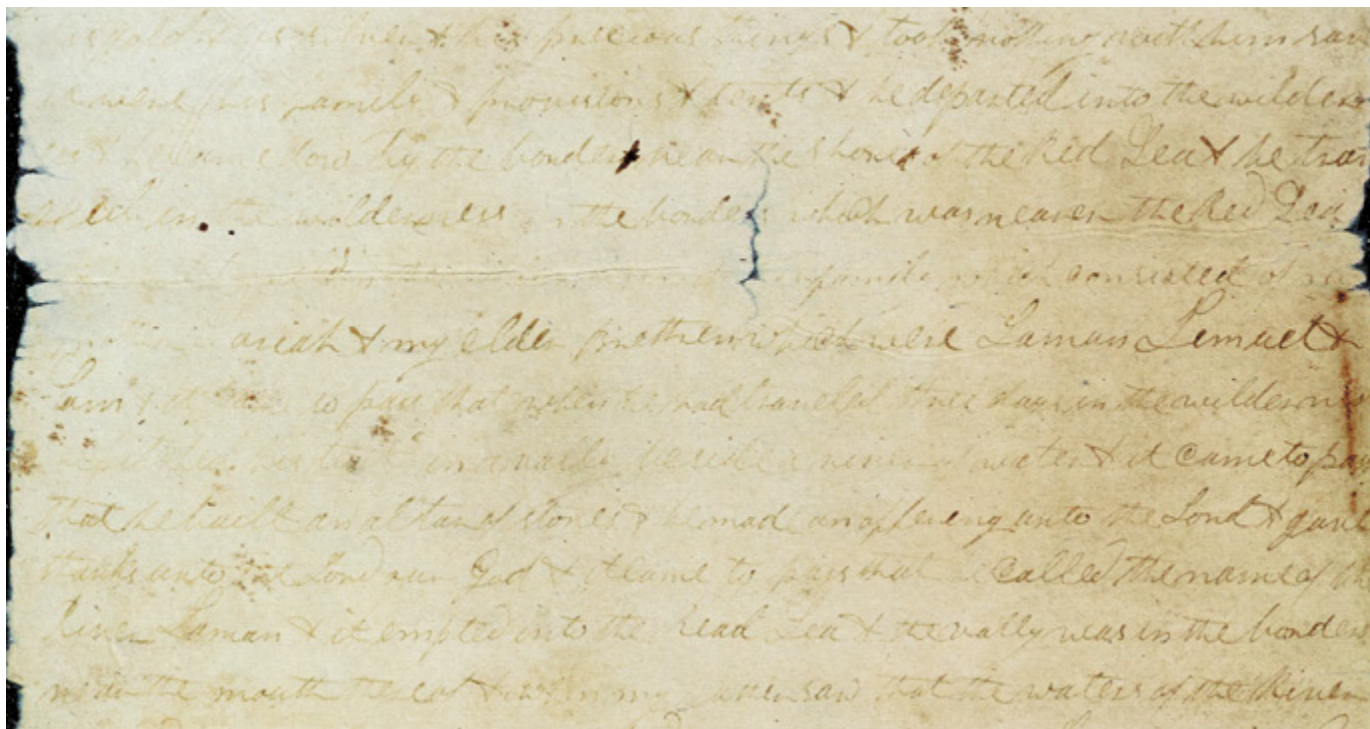 his gold & his silver & his precious things & took nothing with him save
it were his family & provisions & tents & he departed into the wilder
ness & he came down by the borders near the shores of the Red Sea & he trav
eled in the wilderness in the borders which was nearer the Red Sea
family which consisted of my
mother Sariah & my elder brethren which were Laman Lemuel &
Sam & it came to pass that when he had traveled three days in the wilderness
he pitched his tent in a vally beside a river of water & it came to pass
that he built an altar of stones & he made an offering unto the Lord & gave
thanks unto the Lord our God & it came to pass that he called the name of the
River Laman & it emptied into the Read Sea & the vally was in the borders
near the mouth thereof & when my father saw that the waters of the River